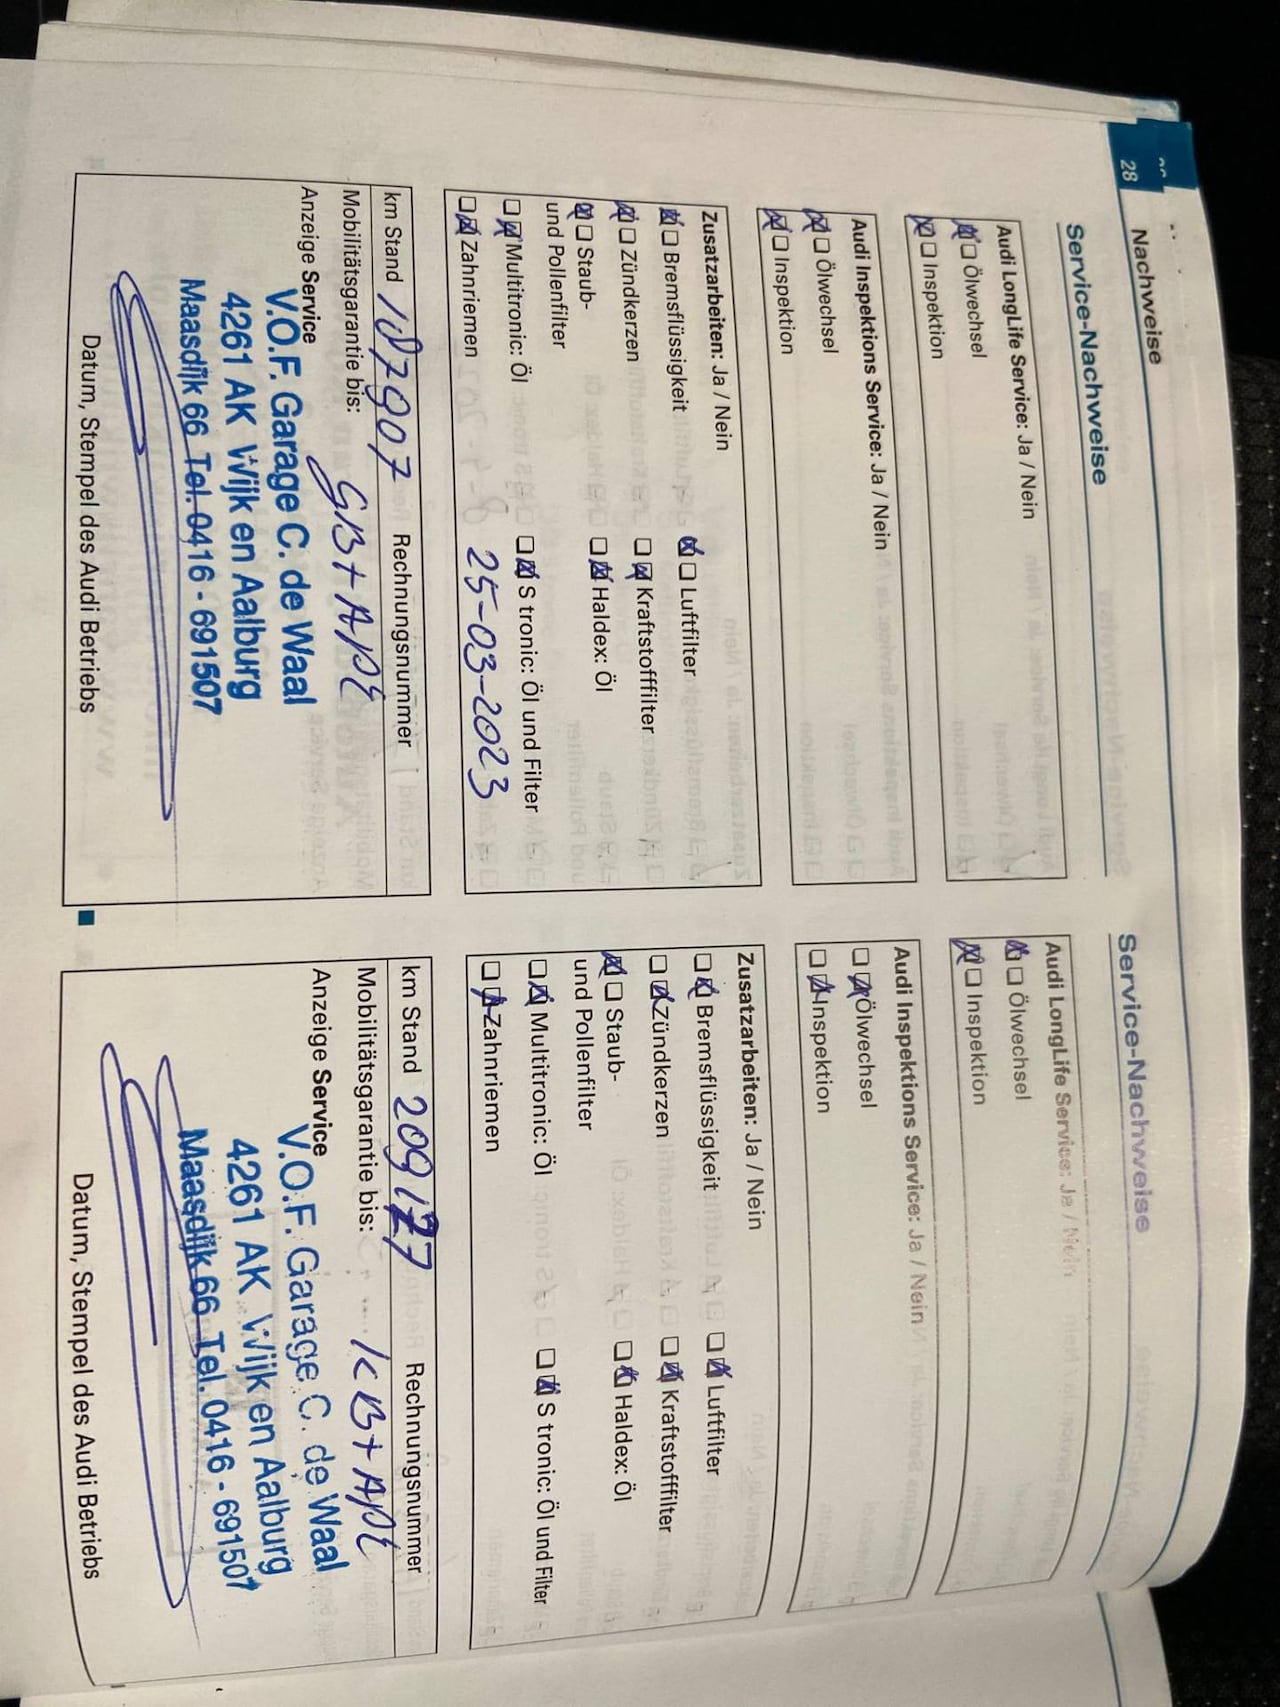 28
Nachweise
Service-Nachweise
Audi LongLife Service: Ja / Nein
Ölwechsel
Inspektion
Audi Inspektions Service: Ja / Nein
Ölwechsel
Inspektion
Zusatzarbeiten: Ja / Nein
Bremsflüssigkeit Luftfilter
Zündkerzen Kraftstofffilter
Staub- Haldex: Öl
und Pollenfilter
Multitronic: Öl S tronic: Öl und Filter
Zahnriemen 25-03-2023
km Stand 187907 Rechnungsnummer
Mobilitätsgarantie bis: GB + APK
Anzeige Service
V.O.F. Garage C. de Waal
4261 AK Wijk en Aalburg
Maasdijk 66 Tel. 0416 - 691507
Datum, Stempel des Audi Betriebs
Service-Nachweise
Audi LongLife Service: Ja / Nein
Ölwechsel
Inspektion
Audi Inspektions Service: Ja / Nein
Ölwechsel
Inspektion
Zusatzarbeiten: Ja / Nein
Bremsflüssigkeit Luftfilter
Zündkerzen Kraftstofffilter
Staub- Haldex: Öl
und Pollenfilter
Multitronic: Öl S tronic: Öl und Filter
Zahnriemen
km Stand 209127 Rechnungsnummer
Mobilitätsgarantie bis: KB + APK
Anzeige Service
V.O.F. Garage C. de Waal
4261 AK Wijk en Aalburg
Maasdijk 66 Tel. 0416 - 691507
Datum, Stempel des Audi Betriebs